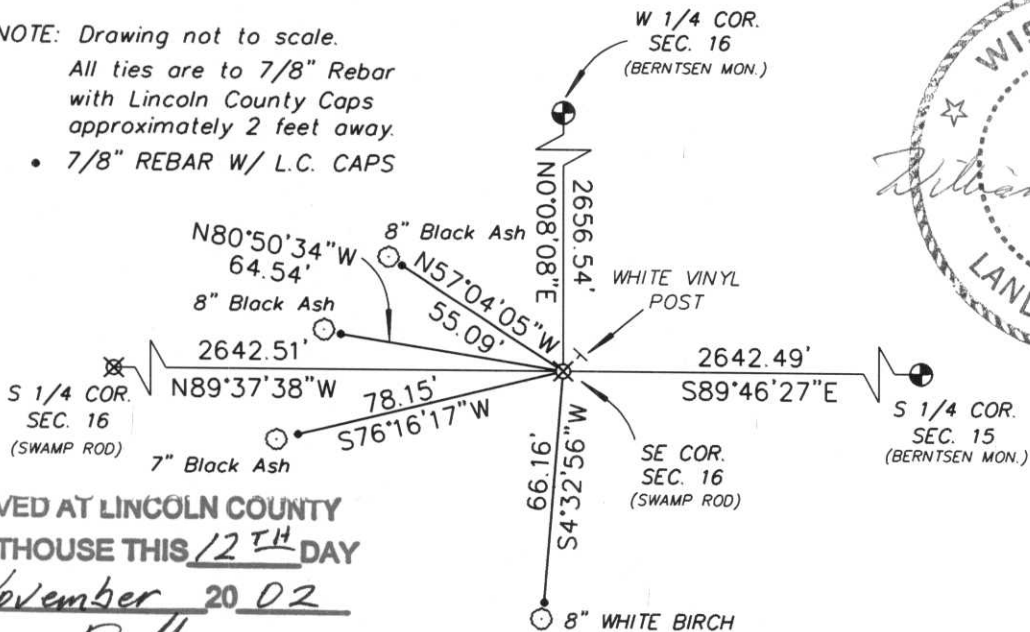 NOTE: Drawing not to scale.
All ties are to 7/8" Rebar
with Lincoln County Caps
approximately 2 feet away.
• 7/8" REBAR W/ L.C. CAPS
W 1/4 COR.
SEC. 16
(BERNTSEN MON.)
WIS
LAND
William
N0°08'08"E
2656.54'
WHITE VINYL
POST
8" Black Ash
N57°04'05"W
55.09'
N80°50'34"W
64.54'
8" Black Ash
2642.51'
N89°37'38"W
S 1/4 COR.
SEC. 16
(SWAMP ROD)
78.15'
S76°16'17"W
7" Black Ash
2642.49'
S89°46'27"E
S 1/4 COR.
SEC. 15
(BERNTSEN MON.)
SE COR.
SEC. 16
(SWAMP ROD)
66.16'
S4°32'56"W
8" WHITE BIRCH
VED AT LINCOLN COUNTY
THOUSE THIS 12TH DAY
November 20 02